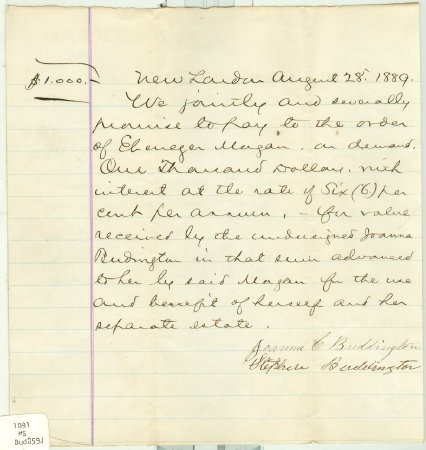 $1.000.– New London August 28. 1889.
We jointly and severally
promise to pay to the order
of Ebenezer Morgan. on demand.
One Thousand Dollars. with
interest at the rate of Six (6) per
cent per annum, – for value
received by the undersigned Joanna
Budington in that sum advanced
to her by said Morgan for the use
and benefit of herself and her
separate estate.
Joanna C Buddington
Stephen Buddington
1091
MS
Bud059J